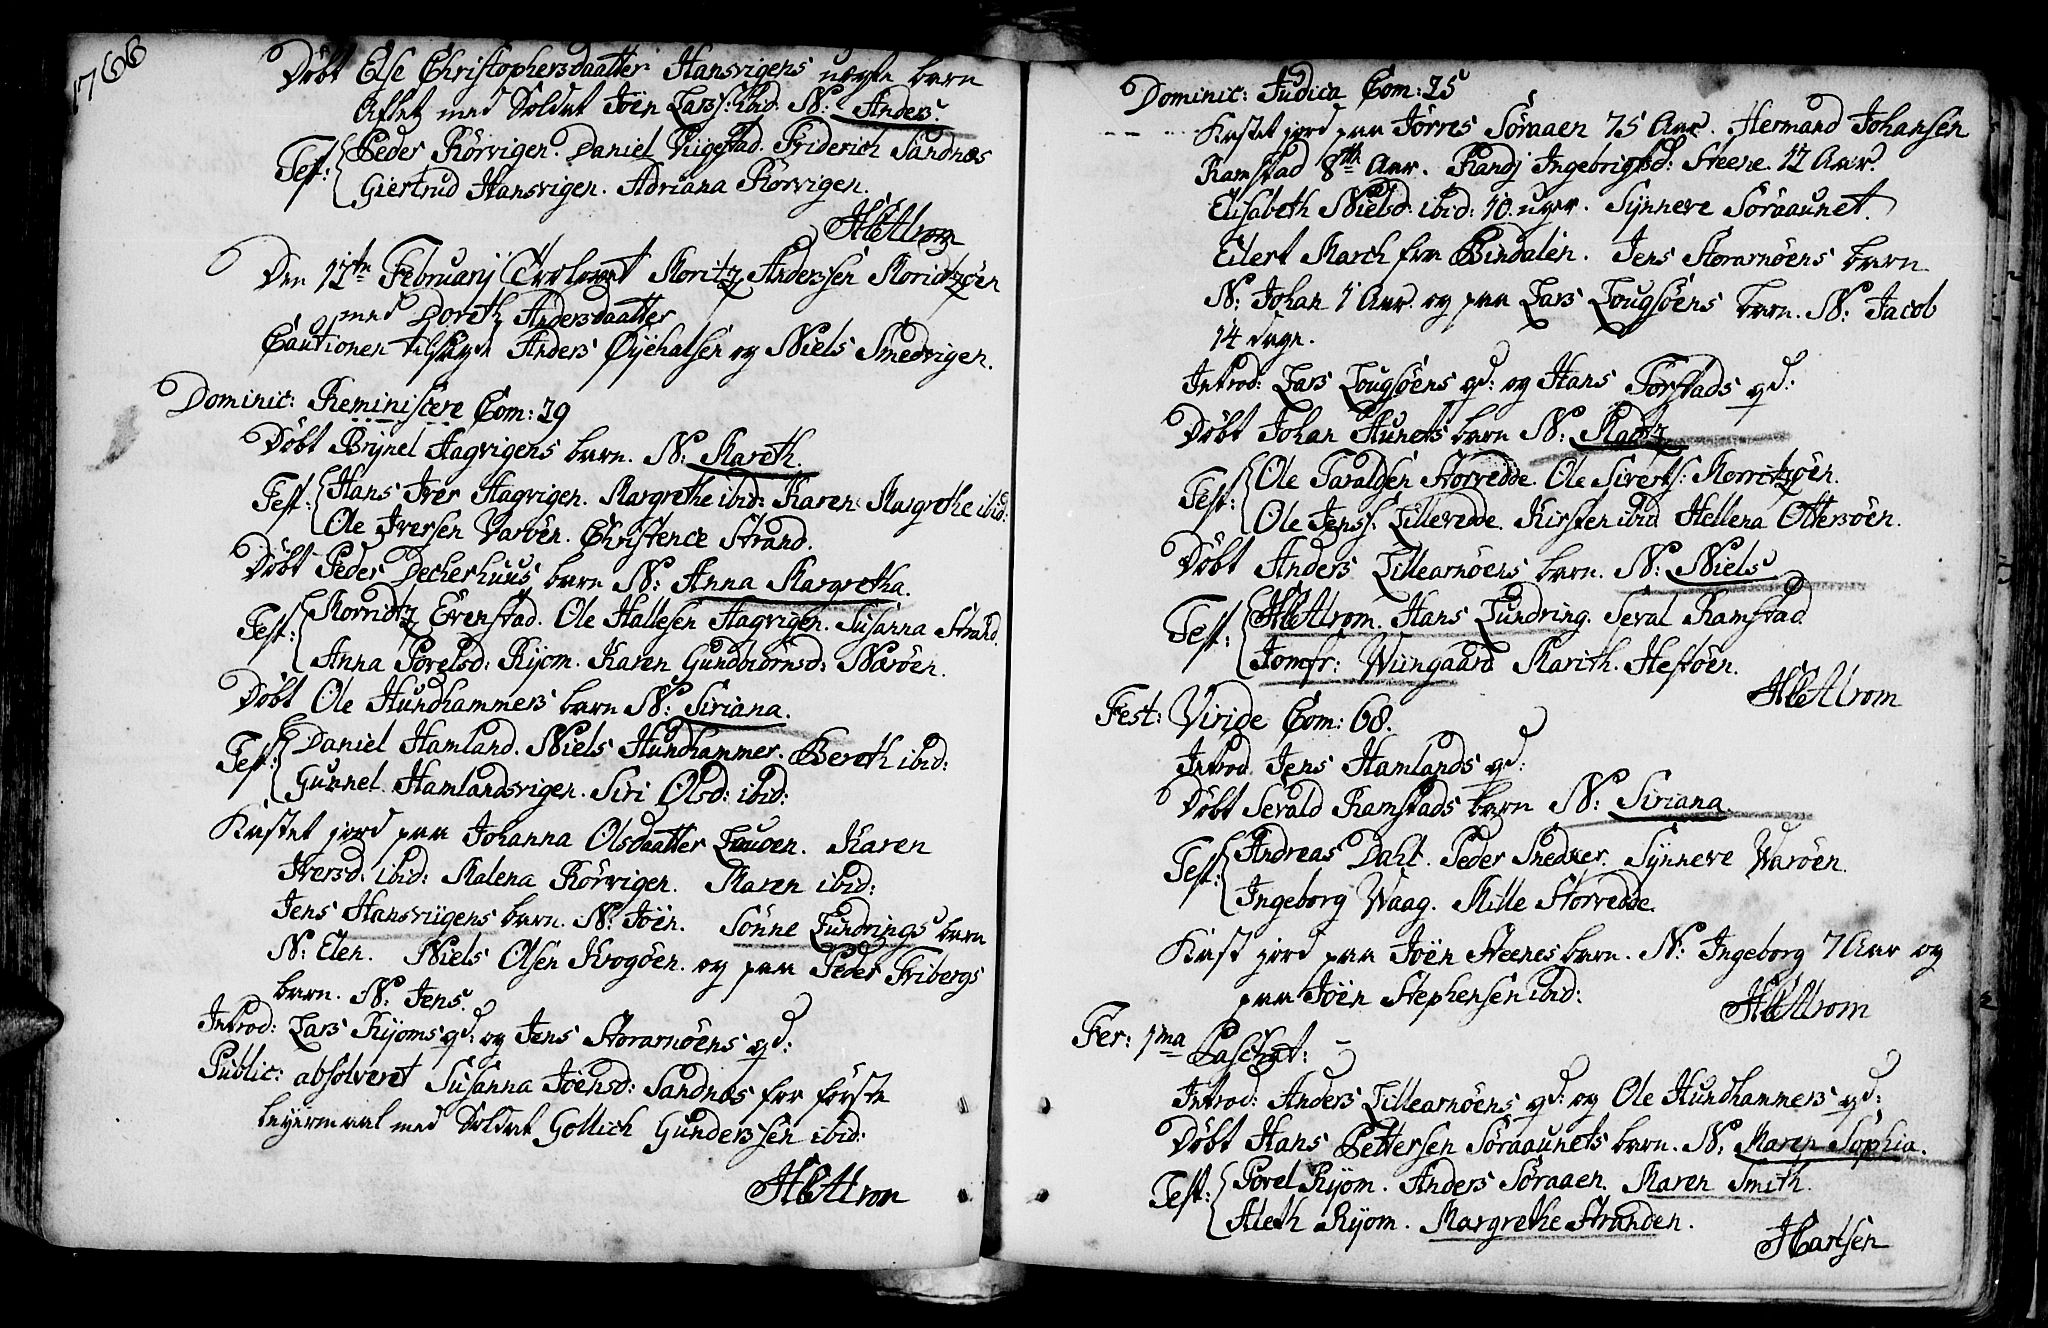 1766
Döbt Else Christophersdaatter Hansvigens uægte barn
Aflet med Soldat Joen Larss: ibid: N: Anders.
Test: Peder Rörvigen. Daniel Viigestad. Friderich Sandnæs
Giertrud Hansvigen. Adriana Rörvigen.
HCAlrom
Den 12te Februarij Trolovet Moritz Andersen Moridtzöen
med Doreth Andersdaatter
Cautionen tilsagde Anders Öyehalsen og Niels Smedvigen.
Dominic: Reminiscere Com: 29
Döbt Brynel Hagvigens barn. N: Mareth.
Test: Hans Iver Hagvigen. Margrethe ibid: Karen Margrethe ibid:
Ole Iversen Varöen. Christence Strand.
Döbt Peder Decherhuus barn N: Anna Margretha.
Test: Morridtz Evenstad. Ole Hallesen Hagvigen. Susanna Strand
Anna Povelsd: Ryom. Karen Gundbiörnsd: Næröen.
Döbt Ole Hundhammers barn N: Siriana.
Test: Daniel Hamland. Niels Hundhammer. Bereth ibid:
Gunnel Hamlandsvigen. Siri Olsd: ibid:
Kastet jord paa Johanna Olsdaatter Karen
Iversd: ibid: Malena Rörvigen. Maren ibid:
Jens Hansviigens barn. N: Joen. Sönne Lundrings barn
N: Elen. Niels Olsen Krogöen. og paa Peder Fribergs
barn. N: Jens.
Introd: Lars Ryoms qd: og Jens Storarnöens qd:
Public: absolveret Susanna Joensd: Sandnæs for förste
leyermaal med Soldat Gollich Gunderssen ibid:
HCAlrom
Dominic: Judica Com: 25
Kastet jord paa Jörres Söraaen 75 Aar. Hermand Johansen
Ramstad 8te Aar. Randj Ingebrigtsd: Steene. 12 Aar.
Elisabeth Nielsd: ibid: 10. uger. Synneve Söraaunet.
Eilert March fra Bindalen. Jens Storarnöens barn
N: Johan 1 Aar. og paa Lars Lougsöens barn. N: Jacob
14 dage.
Introd: Lars Lougsöens qd: og Hans Forstads qd:
Döbt Johan Aunets barn N: Madtz
Test: Ole Taraldsen Storredde. Ole Siverts: Morritzöen.
Ole Jenss: Lilleredde. Kirsten ibid Hellena Ottersöen.
Döbt Anders Lillearnöens barn. N: Niels
Test: HCAlrom. Hans Lundring. Seval Ramstad
Jomfr: Wiingaard Marith. Hestöen.
HCAlrom
Fest: Viride Com: 68.
Introd. Jens Hamlands qd:
Döbt Sevald Ramstads barn N: Siriana
Test: Andreas Dahl. Peder Snedker. Synneve Waröen.
Ingeborg Waag. Mille Storredde.
Kast jord paa Joen Steenes barn. N: Ingeborg 7 Aar og
paa Joen Stephensen ibid:
HCAlrom
Fer: 1ma Paschat:
Introd: Anders Lillearnöens qd: og Ole Hundhammers qd:
Döbt Hans Pettersen Söraaunets barn. N: Maren Sophia.
Test: Povel Ryom. Anders Söraaen. Maren Smith.
Aleth Ryom. Margrethe Stranden.
HCarlsen